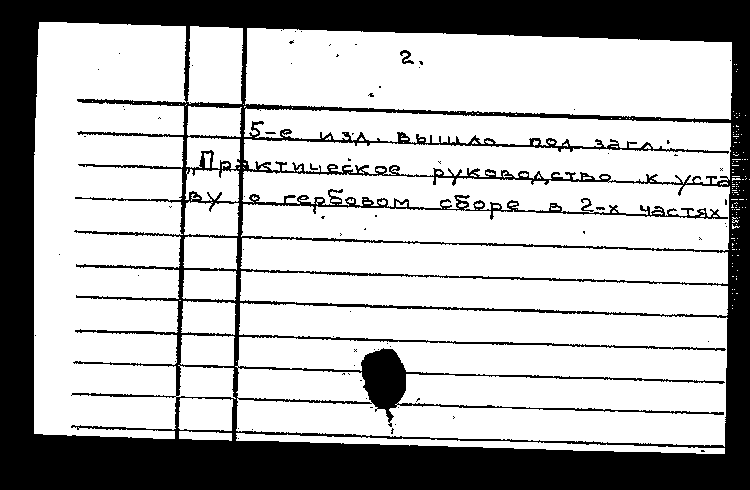 2.
5-е изд. вышло под загл.:
„Практическое руководство к уста
ву о гербовом сборе в 2-х частях"